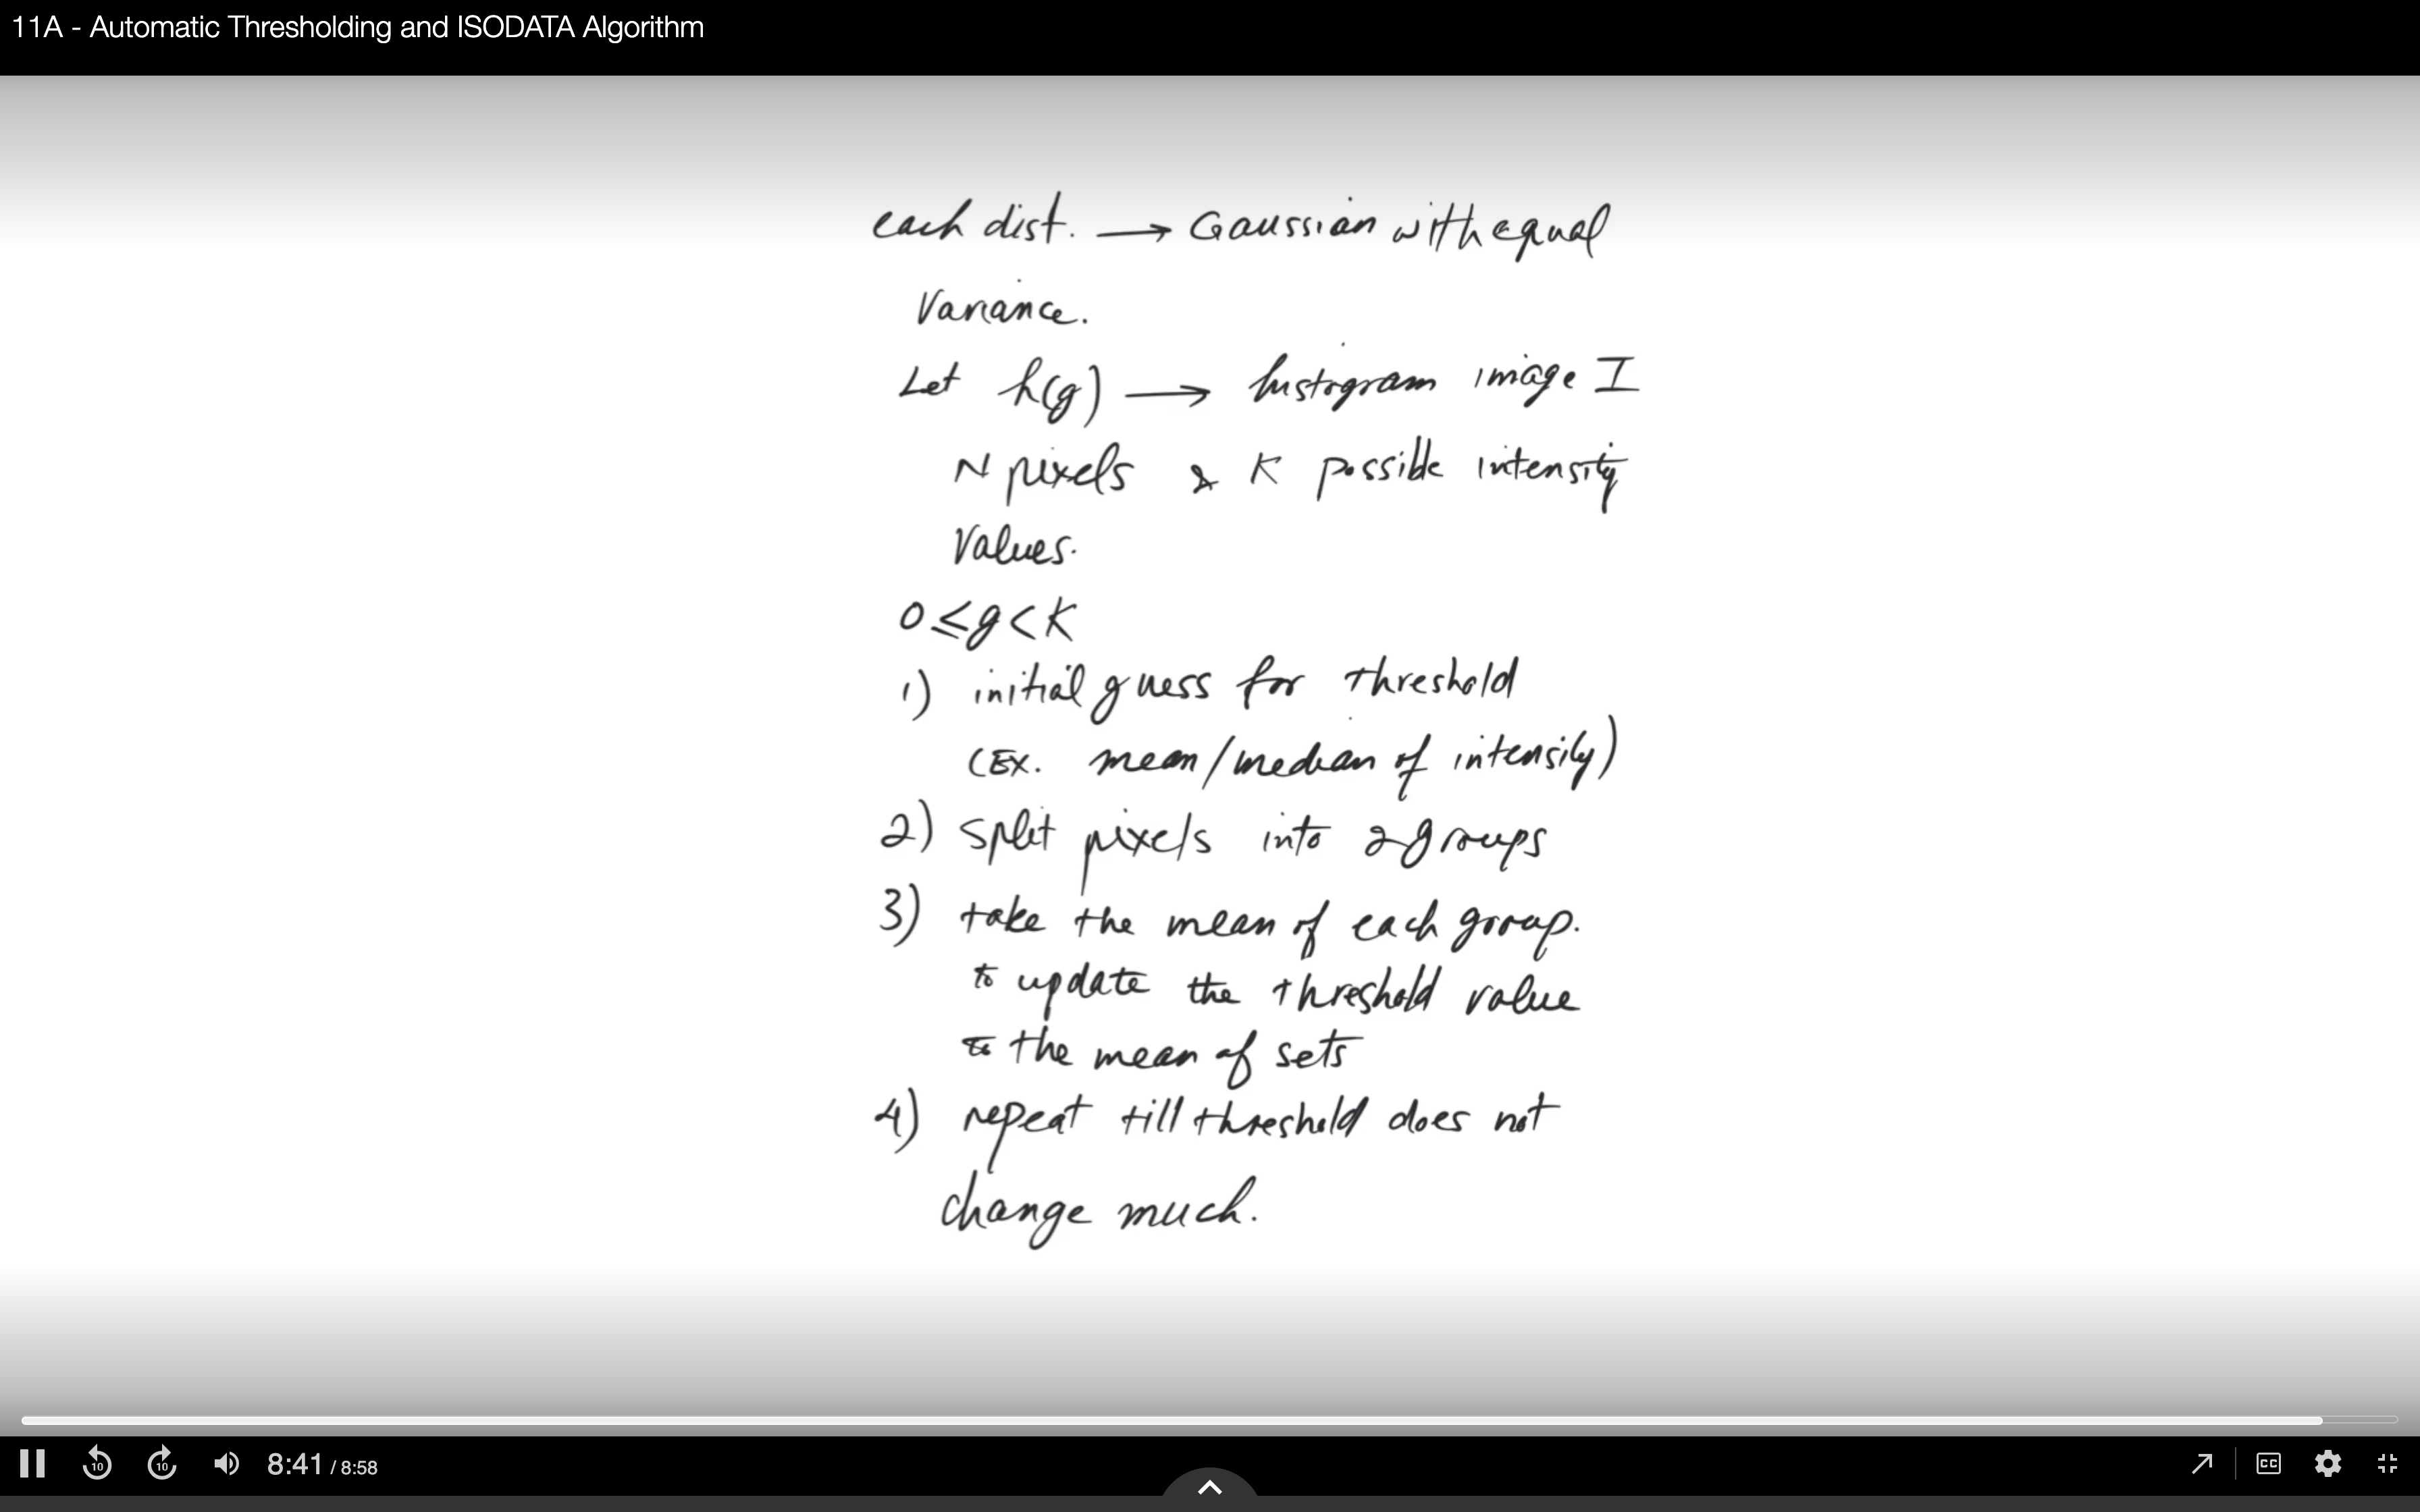 11A - Automatic Thresholding and ISODATA Algorithm
each dist. → Gaussian with equal
Variance.
Let h(g) → histogram image I
N pixels & K possible intensity
Values.
0 ≤ g < K
1) initial guess for threshold
(Ex. mean/median of intensity)
2) split pixels into 2 groups
3) take the mean of each group.
to update the threshold value
to the mean of sets
4) repeat till threshold does not
change much.
10 10 8:41 / 8:58 CC